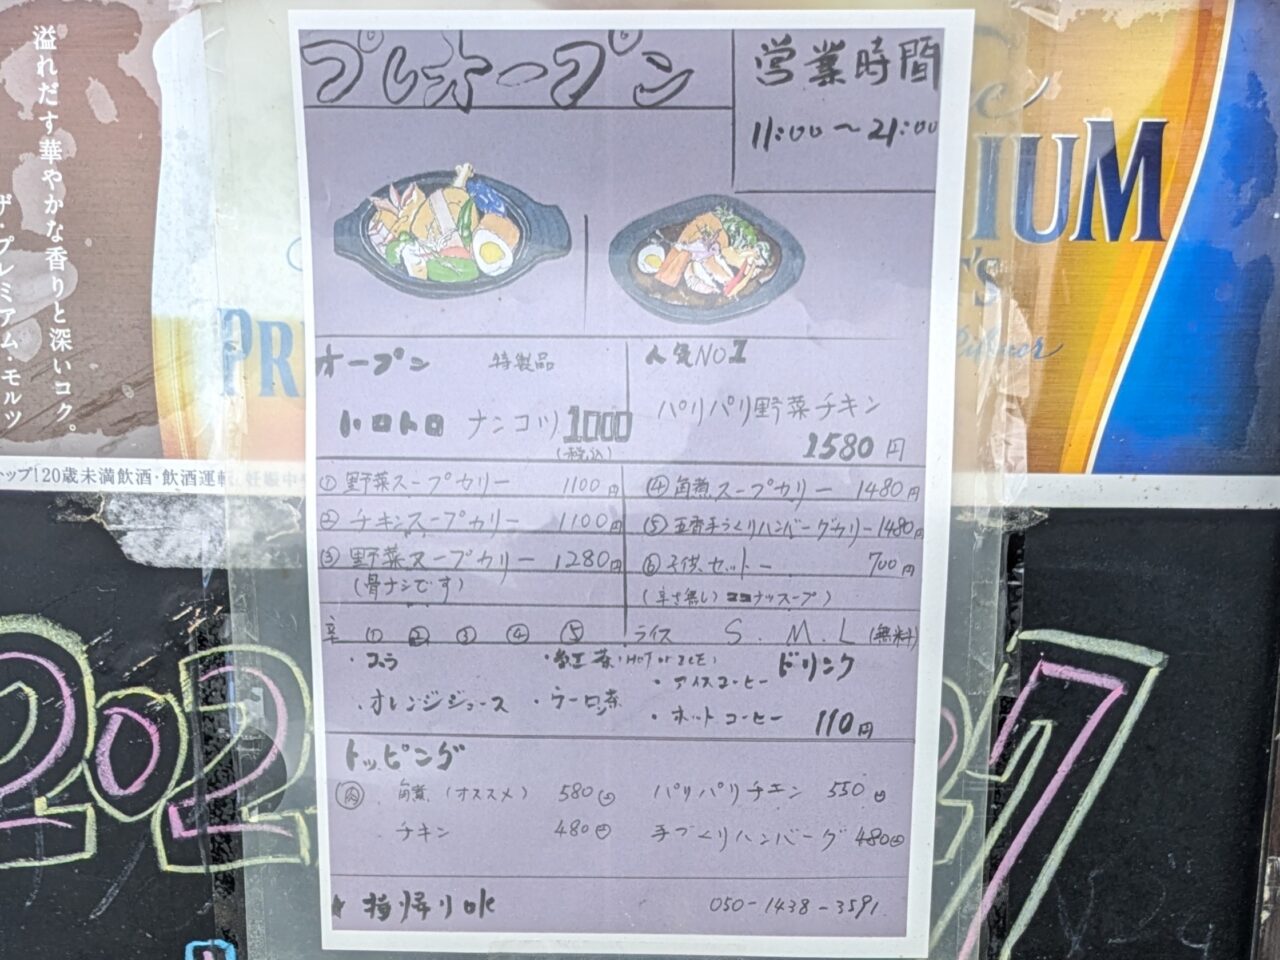 溢れだす華やかな香りと深いコク。
ザ・プレミアム・モルツ
プレオープン
営業時間
11:00～21:00
オープン 特製品
トロトロ ナンコツ 1000
(税込)
人気NO1
パリパリ野菜チキン
1580円
① 野菜スープカリー 1100円
② チキンスープカリー 1100円
③ 野菜スープカリー 1280円
(骨ナシです)
④ 角煮スープカリー 1480円
⑤ 五香手づくりハンバーグカリー 1480円
⑥ 子供セットー 700円
(辛さ無し) ココナッスープ)
辛 ① ② ③ ④ ⑤
ライス S. M. L (無料)
・コーラ
・紅茶(HOT or ICE)
ドリンク
・アイスコーヒー
・オレンジジュース ・ウーロン茶
・ホットコーヒー 110円
トッピング
肉 角煮 (オススメ) 580円
パリパリチキン 550円
チキン 480円
手づくりハンバーグ 480円
★ 持帰りOK
050-1438-3591
PR
IUM
's
Pilsner
ップ!20歳未満飲酒・飲酒運転
202
7